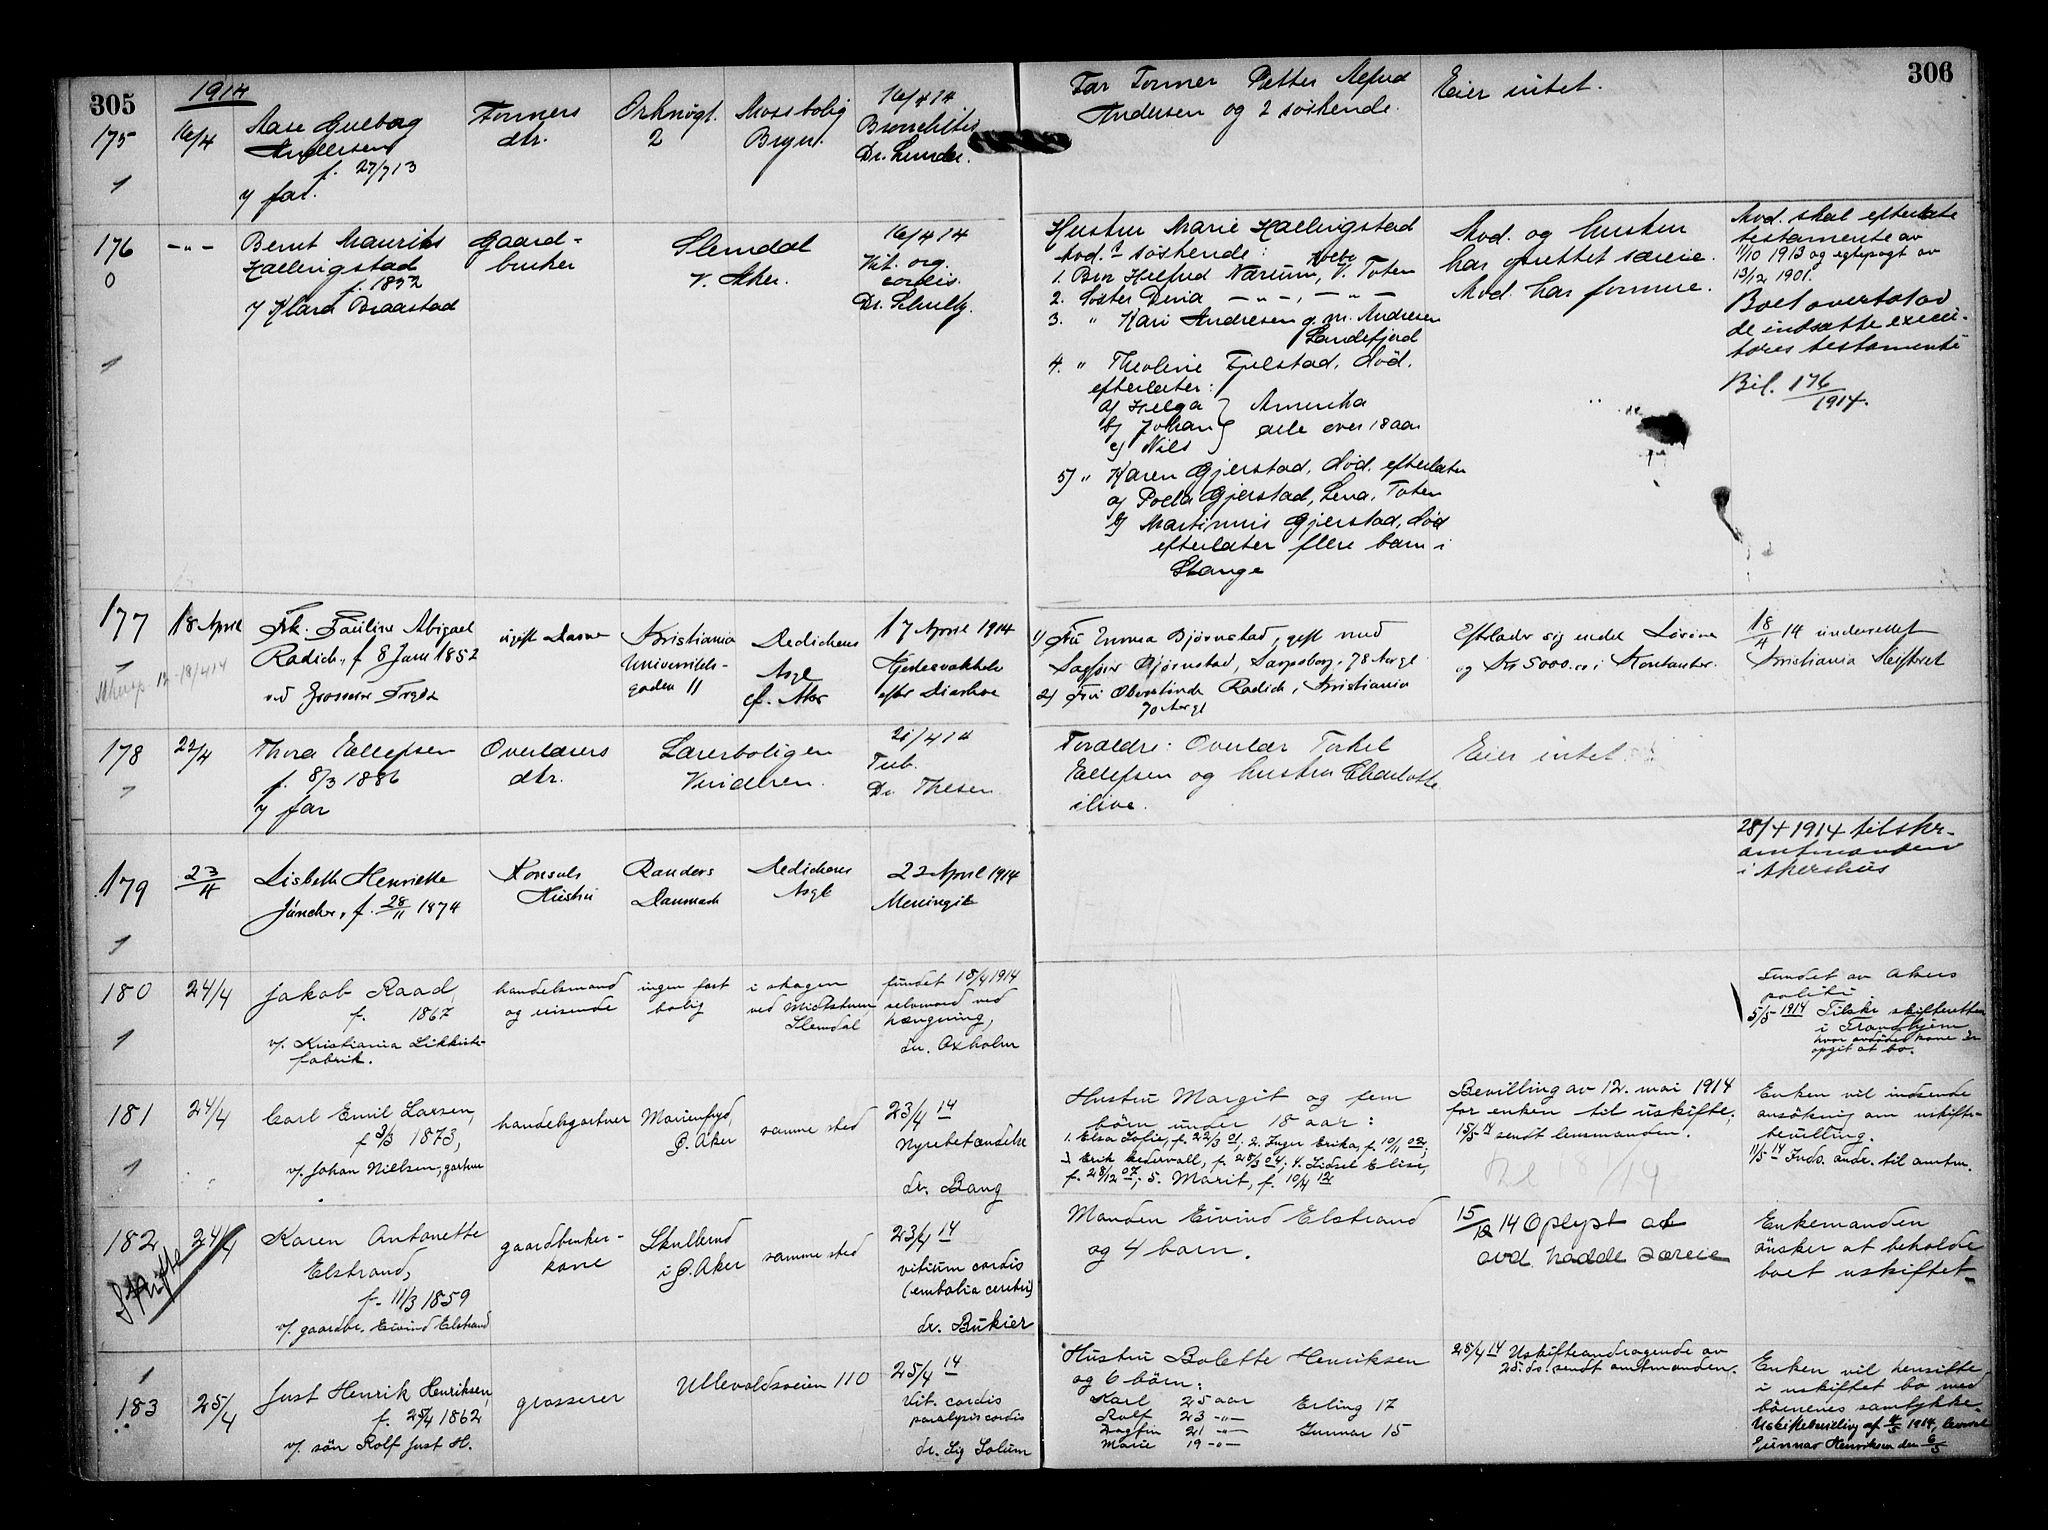 305
306
1914
175
16/4
Aase Gueborg
Andersen
f. 27/7 13
v/ far.
1
Formers
dtr.
2
Mossebolig
Bryn.
16/4 14
Bronchitis
Far Former Petter
Andersen og 2 søskende.
Eier intet.
176
0
1
- " -
Bernt Maurits
Haelingstad
f. 1852
v/ Klara Braastad
Gaard-
bruker
Slemdal
V. Aker.
16/4 14
Vit. org.
cordis.
Dr. Schultz.
Hustru Marie Haelingstad
Avd.s søskende:
1. Bror Helfred Nærum, V. Toten
2. Søster Deria - " -, - " -
3. " Kari Andresen g. m. Andresen
Sandefjord
4. " Theoline Fjelstad, død.
efterlater:
a) Helga } Amerika
b) Johan } alle over 18 aar
c) Nils
5) " Karen Gjerstad, død, efterlater
a) Gjerstad, Lena, Toten
b) Martinius Gjerstad, død
efterlater flere barn i
Stange
Avd. og hustru
har oprettet særeie.
Avd. har formue.
Avd. skal efterlate
testamente av
11/10 1913 og egtepagt av
13/12 1901.
Boet overtat av
de indsatte execu-
tores testamenti
Bil. 176/1914.
177
18 April
Frk. Pauline Abigael
Radich, f 8 Juni 1852
ugift Dame
Kristiania
Universitets-
gaden 11
Dedichens
Asyl
Ø. Aker
17 April 1914
Hjertesvakhet
efter Diarrhoe
1) Fru Emma Bjørnstad, gift med
Sagfører Bjørnstad, Sarpsborg, 78 Aar gl
2) Fru Oberstinde Radich, Kristiania
70 Aar gl
Efterlader sig endel Løsøre
og Krs 5000.00 i Kontanter.
18/4 14 underrettet
Kristiania Skifteret
178
22/4
Thora Eellefsen
f. 8/3 1886
v/ far
Overlærers
dtr.
Lærerboligen
Vinderen.
21/4 14
Tub.
Dr. Thesen.
Forældre: Overlær Torkel
Eellefsen og hustru Charlotte
ilive.
Eier intet.
179
1
23/4
Lisbeth Henriette
Jüncher, f. 28/11 1874
Konsuls
Hustru
Randers
Danmark
Dedichens
Asyl
22 April 1914
Meningit
28/4 1914 tilskr.
amtmanden
i Akershus
180
1
24/4
Jakob Raad,
f. 1867
v/. Kristiania Likkiste-
fabrik.
handelsmand
og reisende
ingen fast
bolig
i skogen
ved Midtstuen
Slemdal
fundet 18/4 1914
selvmord ved
hængning,
dr. Oxholm
Fundet av Akers
politi
5/5 1914 Tilskr skifteretten
i Trondhjem
hvor avdødes kone er
opgit at bo.
181
1
24/4
Carl Emil Larsen,
f 3/3 1873,
v/. Johan Nielsen, gartner
handelsgartner
Marienfryd,
Ø. Aker
samme sted
23/4 14
Nyrebetændelse
dr. Bang
Hustru Margit og fem
børn under 18 aar:
1. Elsa Sofie, f. 22/3 01; 2. Inger Erika, f. 10/11 02;
3 Erik Cedervall, f. 28/3 04; 4. Lidsel Elise,
f. 28/12 07; 5. Marit, f. 10/4 12
Bevilling av 12. mai 1914
for enken til uskifte,
15/5 14 sendt lensmanden.
Enken vil indsende
ansøkning om uskifte-
bevilling.
11/5 14 Inds. andr. til amtm.
182
24/4
Skifte
Karen Antonette
Elstrand,
f. 11/3 1859
v/. gaardbr. Eivind Elstrand
gaardbruker-
kone
Skullerud
i Ø. Aker
samme sted
23/4 14
vitium cordis
(embolia cerebri)
dr. Bükier
Manden Eivind Elstrand
og 4 barn.
15/12 14 Oplyst at
avd hadde særeie
Enkemanden
ønsker at beholde
boet uskiftet
1
183
25/4
Just Henrik Henriksen,
f. 25/4 1862
v/. søn Rolf Just H.
grosserer
Ullevoldsveien 110
25/4 14
Vit. cordis
paralysis cordis
dr. Sig Solum
Hustru Bolette Henriksen
og 6 børn:
Karl 25 aar Erling 17
Rolf 23 - " -
Dagfin 21 - " - Gunnar 15
Marie 19 - " -
28/4 14 Uskifteandragende av
25. ds. sendt amtmanden.
Enken vil hensitte
i uskiftet bo med
børnenes samtykke.
Uskiftebevilling af 4/5 1914, leveret
Gunnar Henriksen den 6/5